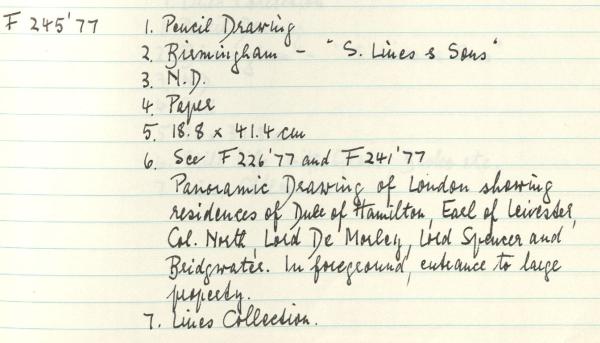 F 245'77 1. Pencil Drawing
2. Birmingham - "S. Lines & Sons"
3. N.D.
4. Paper
5. 18.8 x 41.4 cm
6. See F 226'77 and F 241'77
Panoramic Drawing of London showing
residences of Duke of Hamilton, Earl of Leivester,
Col. North, Lord De Morley, Lord Spencer and
Bridgwater. In foreground, entrance to large
property.
7. Lines Collection.